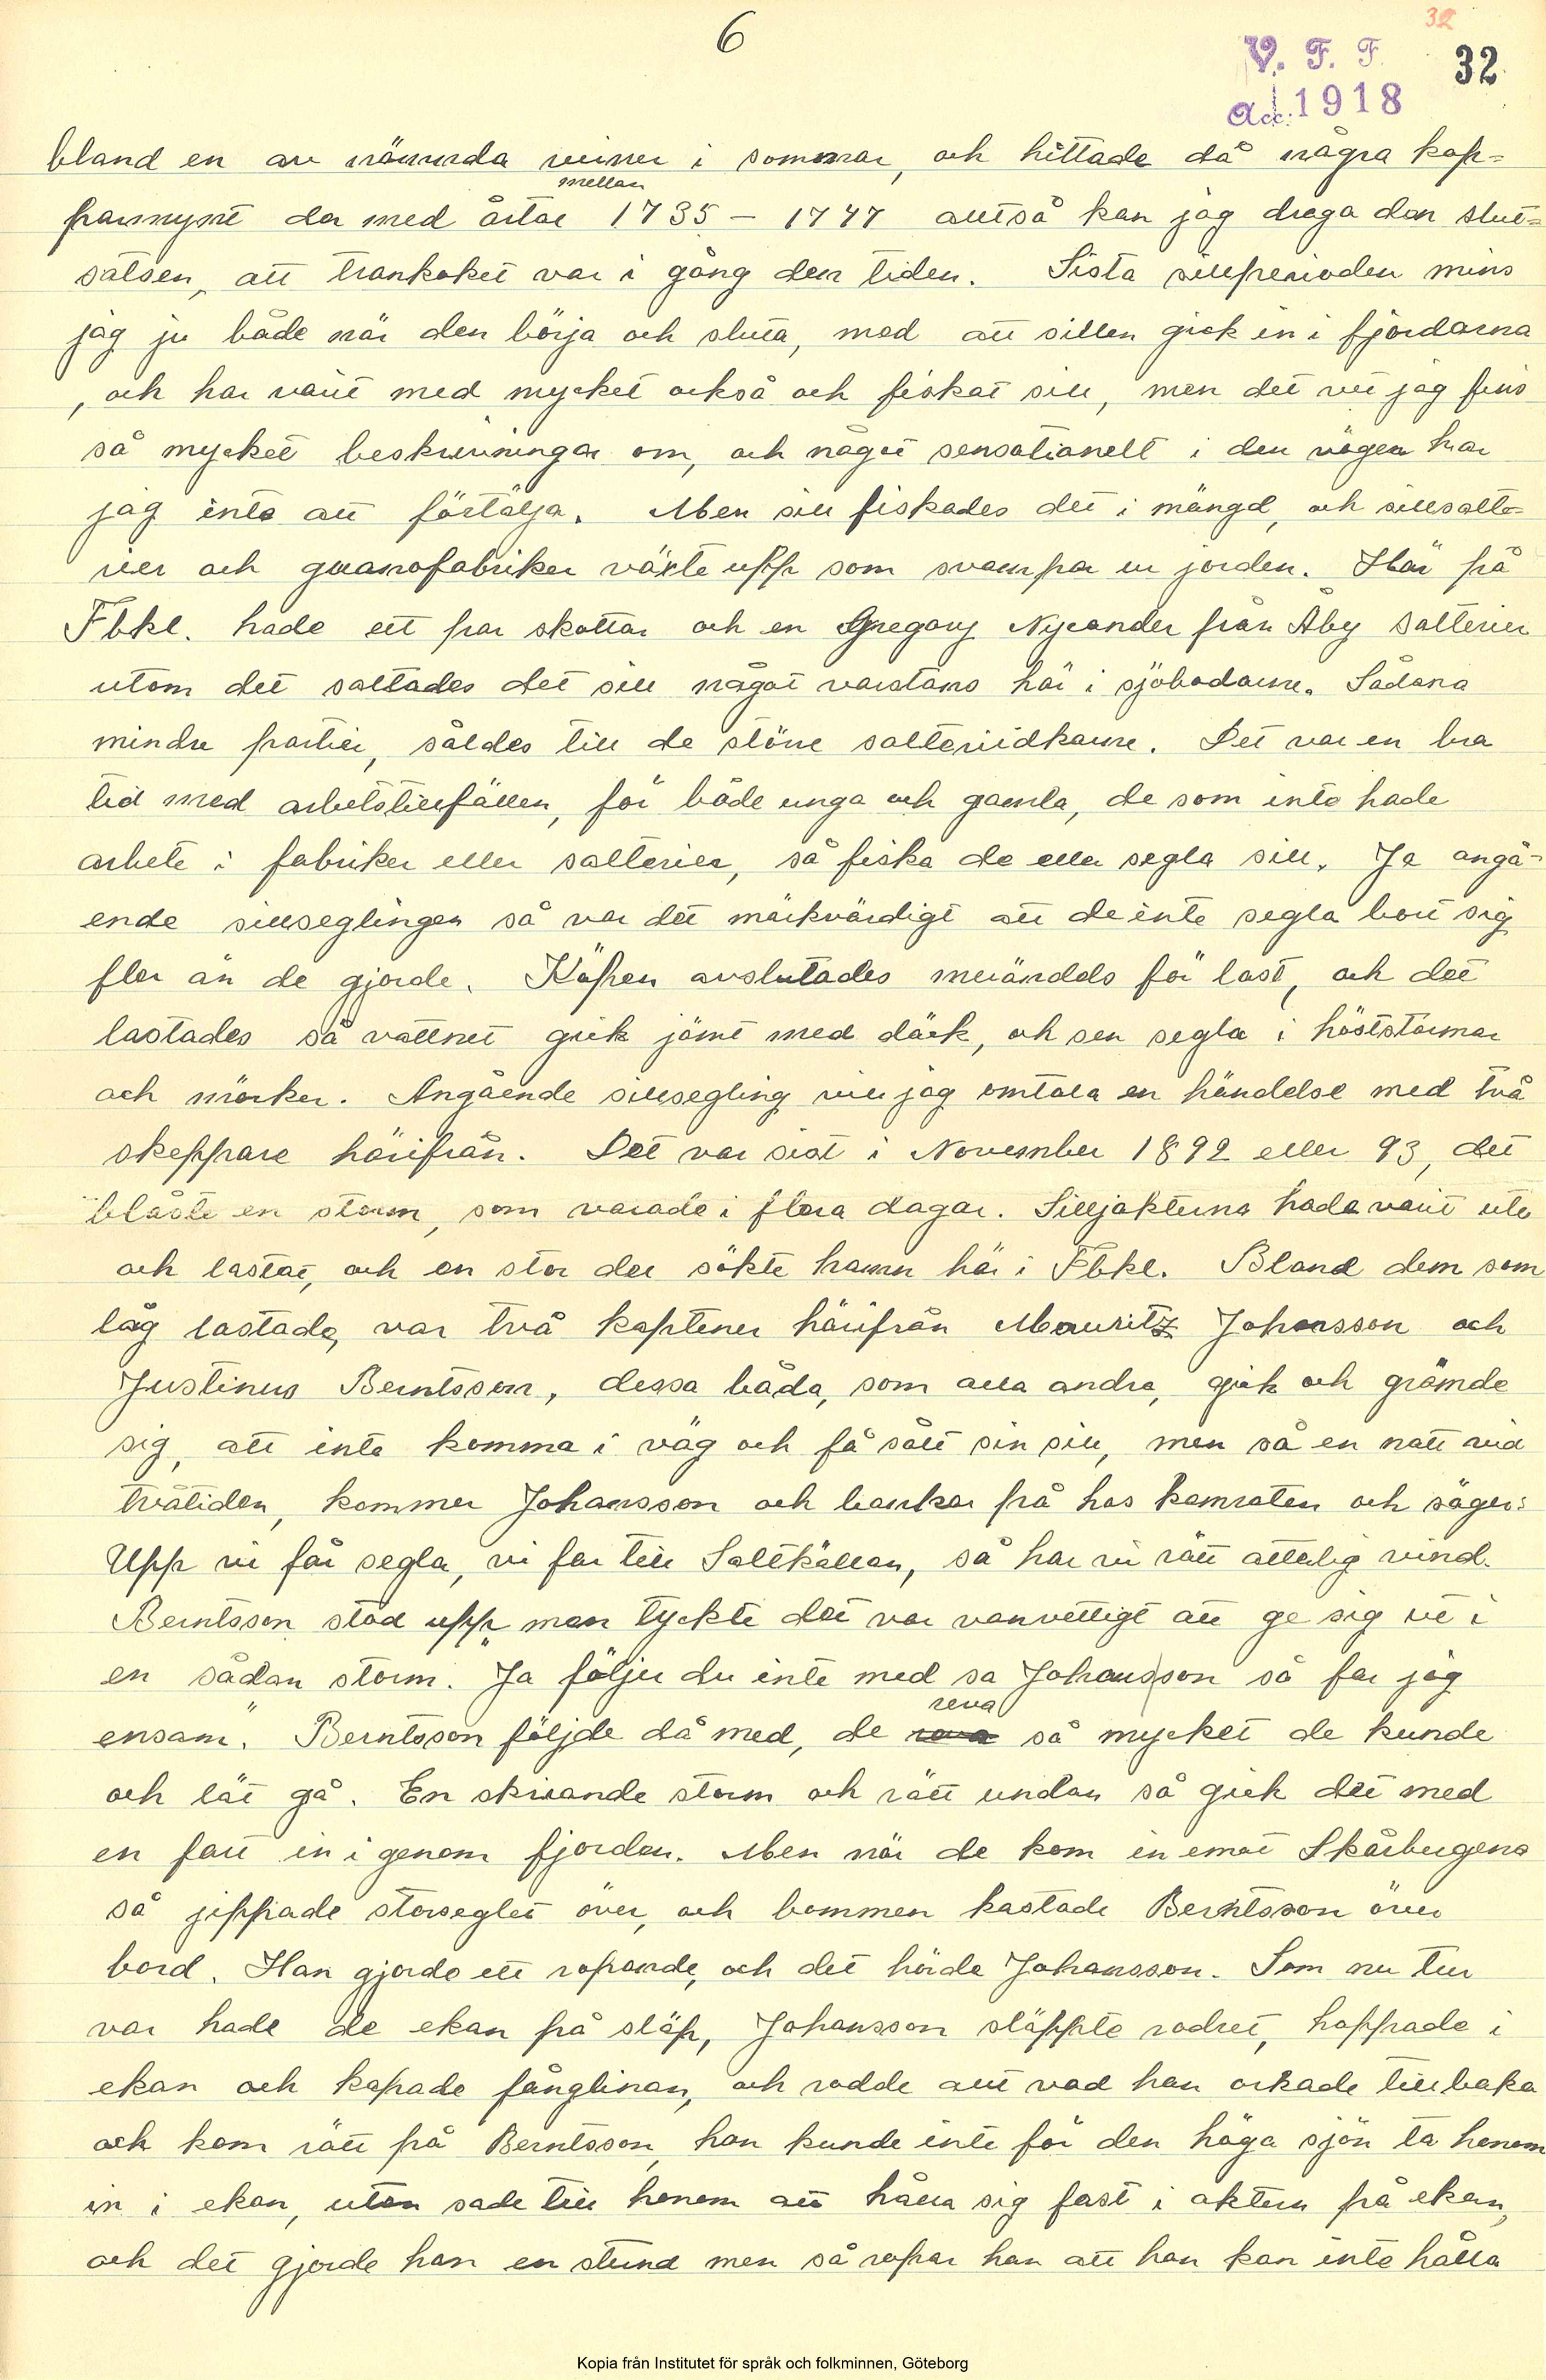 6
32
V. F. F.
32
Acc: 1918
bland en av nämnda ruiner i sommar, och hittade då några kop-
mellan
parmynt der med årtar 1735 - 1747 alltså kan jag draga den slut-
satsen, att trankoket var i gång den tiden. Sista sillperioden mins
jag ju både när den börja och sluta, med att sillen gick in i fjordarna
, och har varit med mycket också och fiskat sill, men det vet jag fins
så mycket beskrivningar om, och något sensationellt i den vägen har
jag inte att förtälja. Men sill fiskades det i mängd, och sillsalte-
rier och guanofabriker växte upp som svampar ur jorden. Här på
Fbkl. hade ett par skottar och en Gregory Nycander från Åby salterier
utom det saltades det sill något varstans här i sjöbodarne. Sådana
mindre partier, såldes till de större salteriidkarne. Det var en bra
tid med arbetstillfällen, för både unga och gamla, de som inte hade
arbete i fabriker eller salterier, så fiska de eller segla sill. Ja angå-
ende sillseglingen så var det märkvärdigt att de inte segla bort sig
fler än de gjorde. Köpen avslutades merändels för last, och det
lastades så vattnet gick jämt med däck, och sen segla i höststormar
och mörker. Angående sillsegling vill jag omtala en händelse med två
skeppare härifrån. Det var sist i November 1892 eller 93, det
blåste en storm, som varade i flera dagar. Silljakterna hade varit ute
och lastat, och en stor del sökte hamn här i Fbkl. Bland dem som
låg lastade, var två kaptener härifrån Mauritz Johansson och
Justinus Berntsson, dessa båda, som alla andra, gick och grämde
sig, att inte komma i väg och få sålt sin sill, men så en natt vid
tvåtiden, kommer Johansson och bankar på hos kamraten och säger:
Upp vi får segla, vi far till Saltkällan, så har vi rätt akterlig vind.
Berntsson stod upp men tyckte det var vanvettigt att ge sig ut i
en sådan storm. "Ja följer du inte med sa Johansson så far jag
reva
ensam". Berntsson följde då med, de så mycket de kunde
och lät gå. En skivande storm och rätt undan så gick det med
en fart in i genom fjorden. Men när de kom in emot Skårbergens
så jippade storseglet över, och bommen kastade Berntsson över
bord. Han gjorde ett ropande, och det hörde Johansson. Som nu tur
var hade de ekan på släp, Johansson släppte rodret, hoppade i
ekan och kapade fånglinan, och rodde allt vad han orkade tillbaka
och kom rätt på Berntsson, han kunde inte för den höga sjön ta honom
in i ekan, utan sade till honom att hålla sig fast i aktern på ekan,
och det gjorde han en stund men så ropar han att han kan inte hålla
Kopia från Institutet för språk och folkminnen, Göteborg